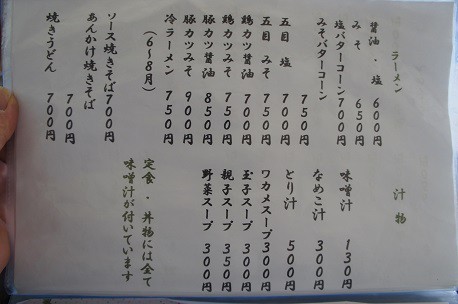 ラーメン
醤油・塩 600円
みそ 650円
塩バターコーン 700円
みそバターコーン 750円
五目 塩 700円
五目 みそ 750円
鶏カツ醤油 700円
鶏カツみそ 750円
豚カツ醤油 850円
豚カツみそ 900円
冷ラーメン 750円
(6〜8月)
ソース焼きそば 700円
あんかけ焼きそば 700円
焼きうどん 700円
汁物
味噌汁 130円
なめこ汁 300円
とり汁 500円
ワカメスープ 300円
玉子スープ 300円
親子スープ 350円
野菜スープ 300円
定食・丼物には全て
味噌汁が付いています